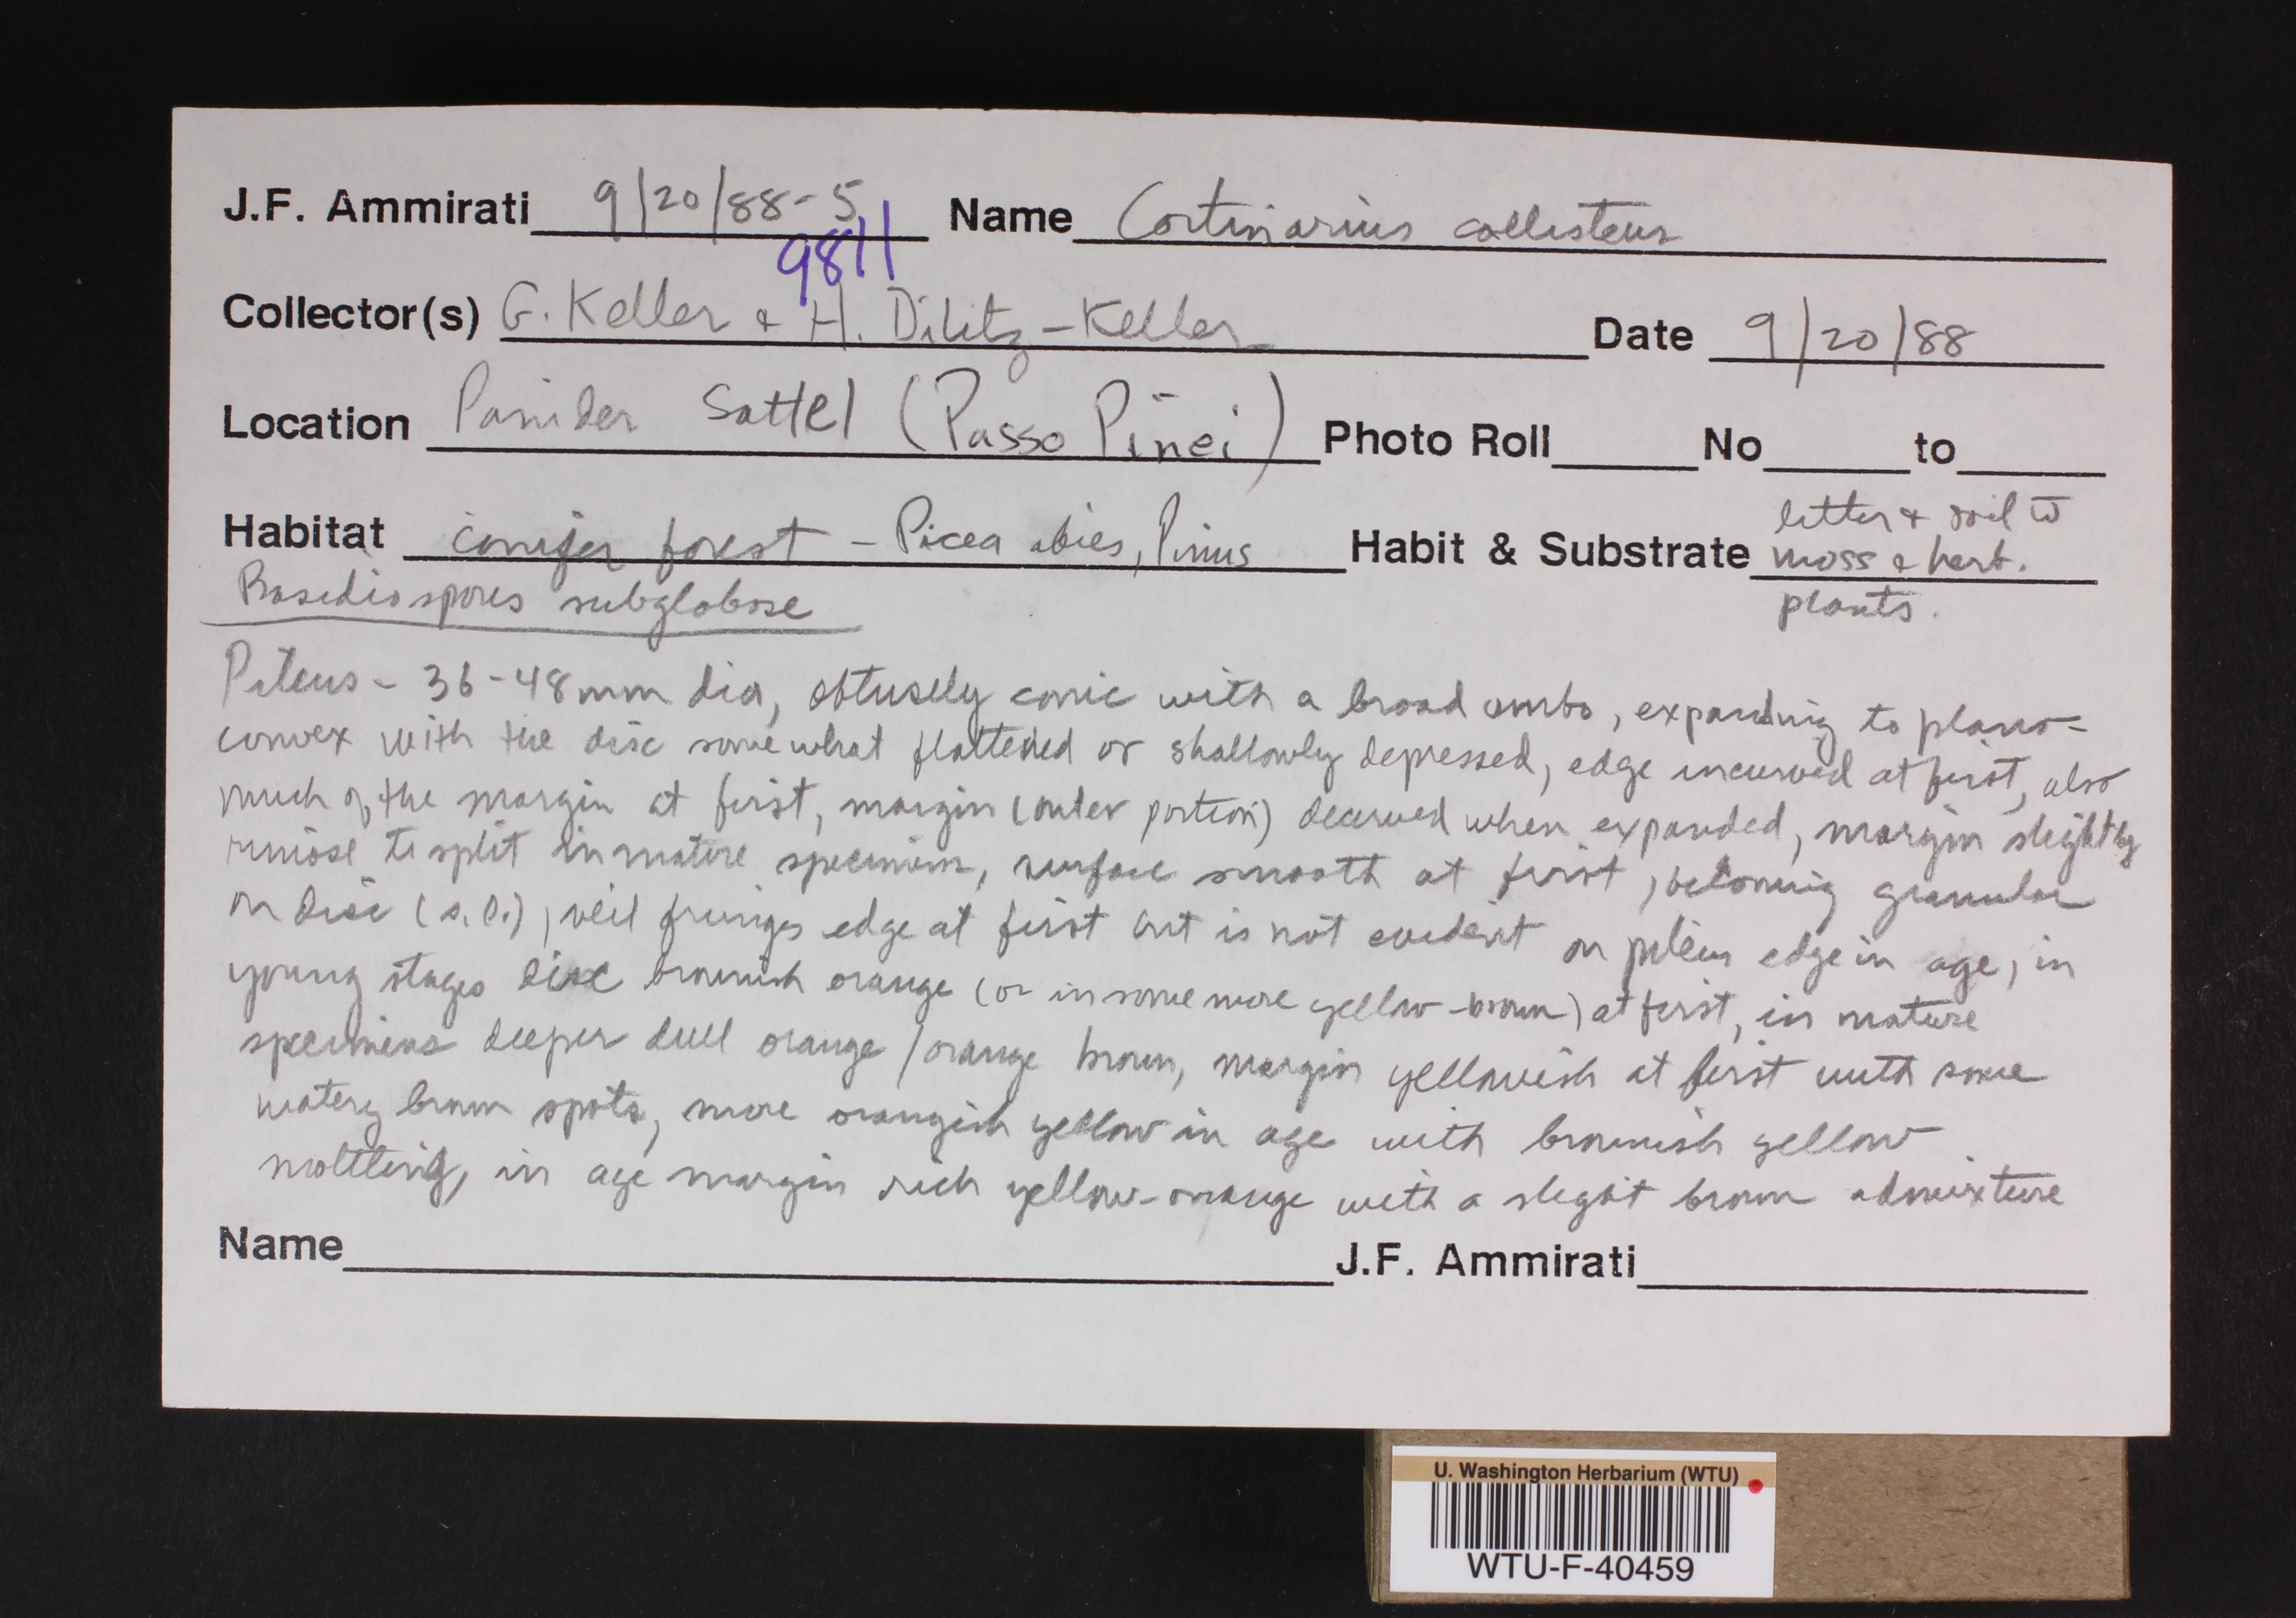 J.F. Ammirati 9/20/88-5 Name Cortinarius callisteus
9811
Collector(s) G. Keller & H. Dilitz-Keller Date 9/20/88
Location Panider Sattel (Passo Pinei) Photo Roll No to
Habitat conifer forest - Picea abies, Pinus Habit & Substrate litter & soil w̄ moss & herb. plants.
Basidiospores subglobose
Pileus - 36-48mm dia, obtusely conic with a broad umbo, expanding to plano-
convex with the disc somewhat flattened or shallowly depressed, edge incurved at first, also
much of the margin at first, margin (outer portion) decurved when expanded, margin slightly
rimose to split in mature specimens, surface smooth at first, becoming granular
on disc (s.l.), veil fringes edge at first but is not evident on pileus edge in age, in
young stages disc brownish orange (or in some more yellow-brown) at first, in mature
specimens deeper dull orange/orange brown, margin yellowish at first with some
watery brown spots, more orangish yellow in age with brownish yellow
mottling, in age margin rich yellow-orange with a slight brown admixture
Name J.F. Ammirati
U. Washington Herbarium (WTU)
WTU-F-40459